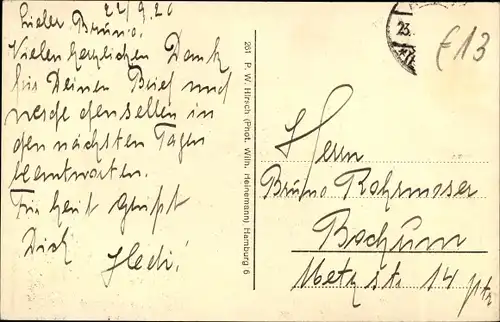 22/9.20
Lieber Bruno.
Vielen herzlichen Dank
für Deinen Brief und
werde denselben in
den nächsten Tagen
beantworten.
Für heut grüßt
Dich
Hedi!
261 P. W. Hirsch (Phot. Wilh. Heinemann) Hamburg 6
23.
£13
Herrn
Bruno Rohrmoser
Bochum
Metzstr. 14 ptr